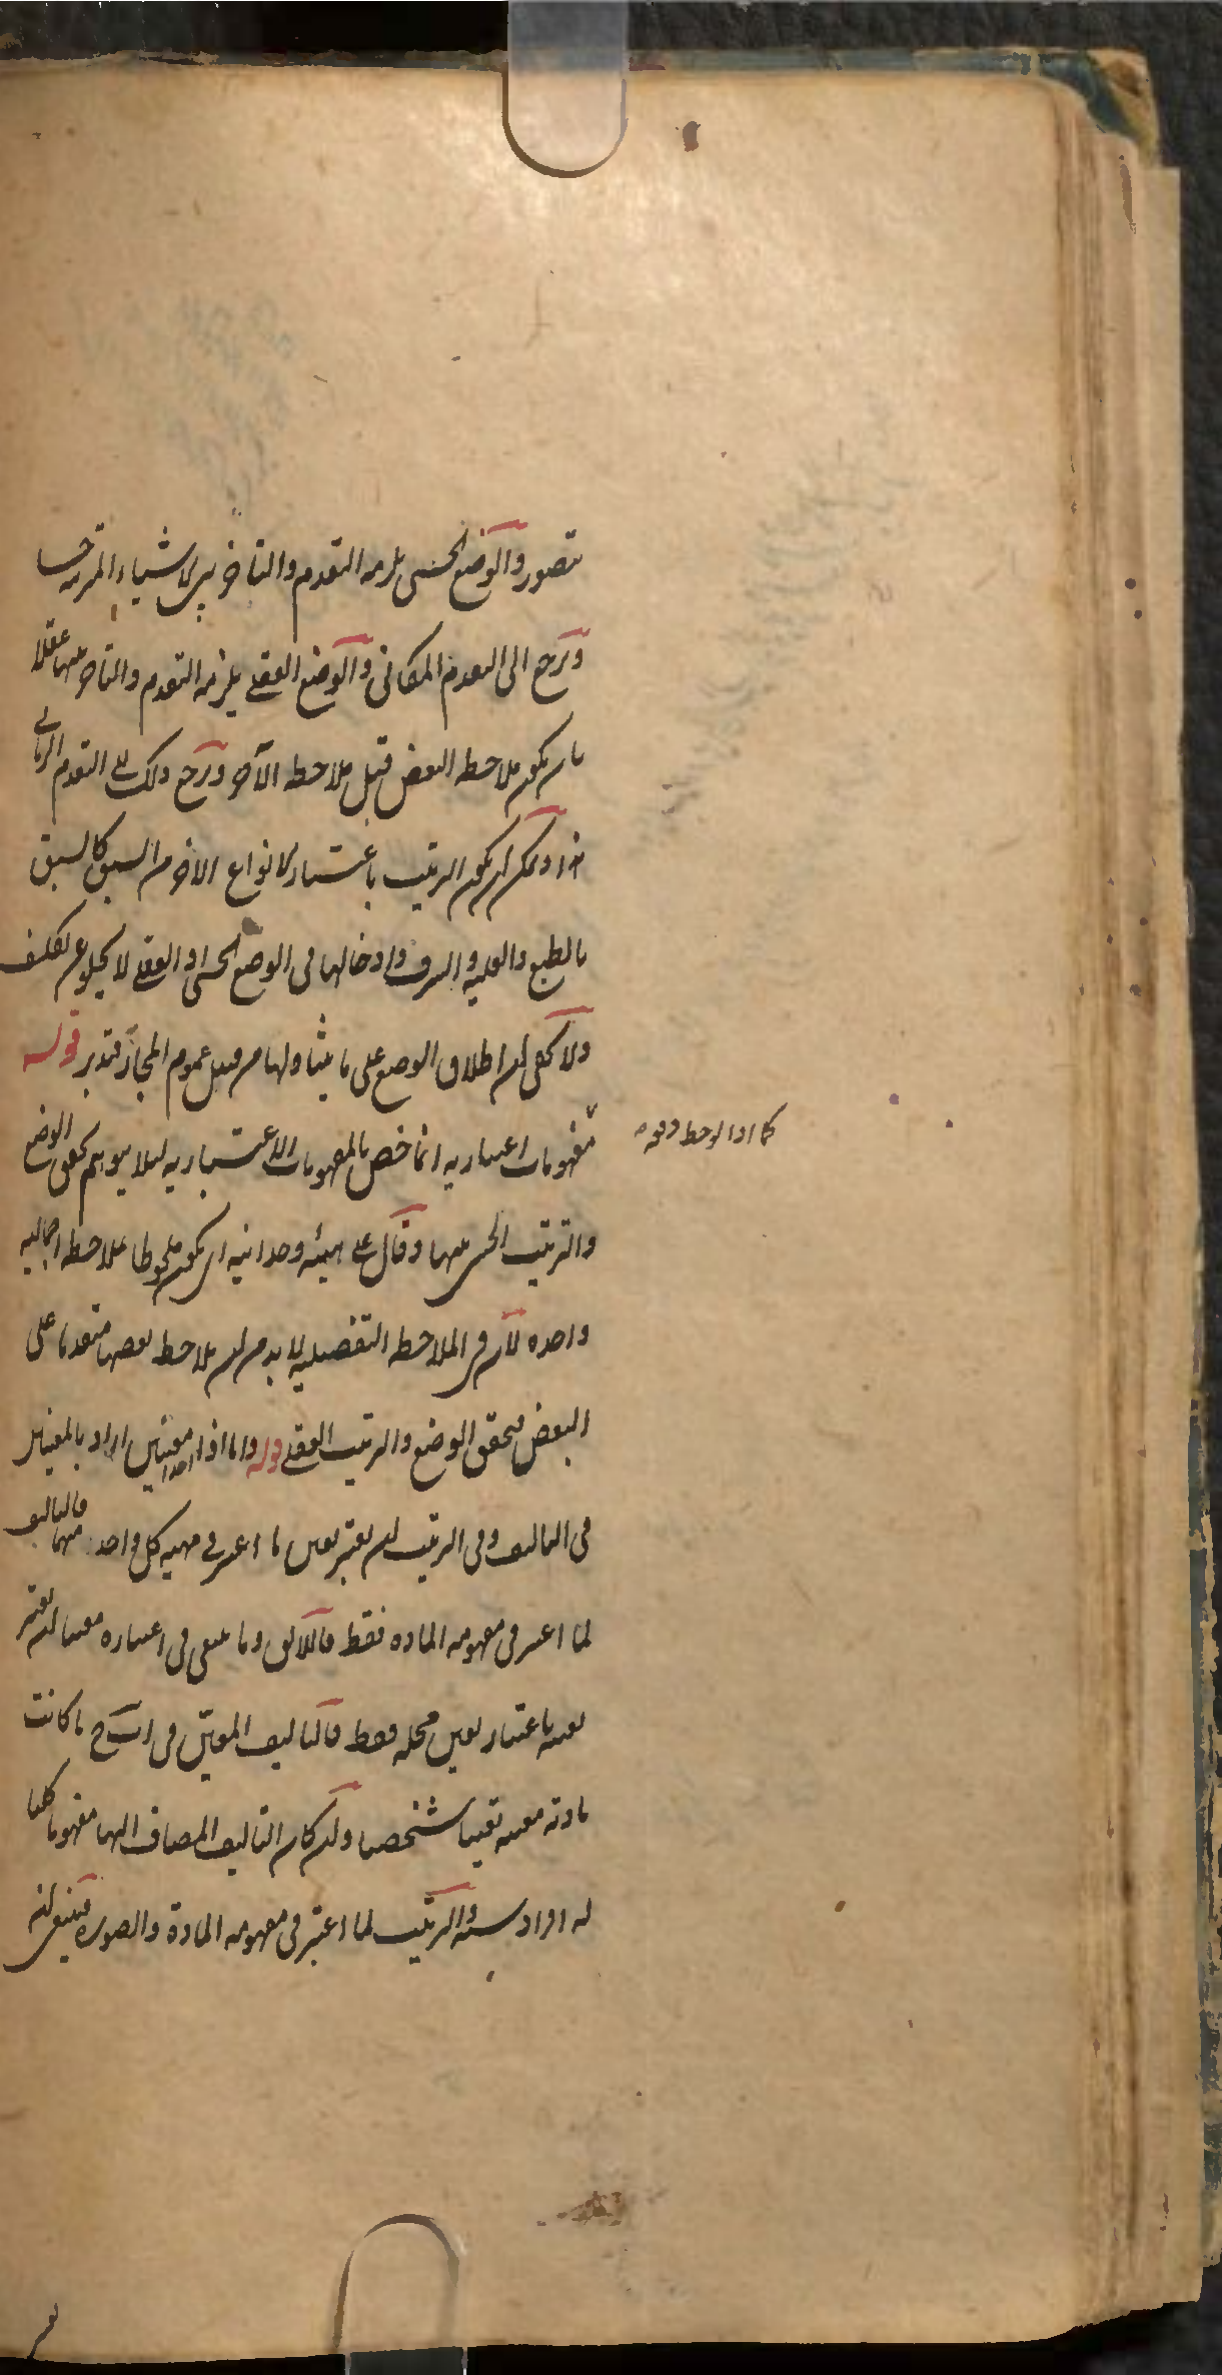 يتصور والوضع الحسى يلزمه التقدم والتاخر بين الاشياء المرتبة حسا
ويرجع الى التقدم المكانى والوضع العقلى يلزمه التقدم والتاخر بينها عقلا
بان يكون ملاحظة البعض قبل ملاحظة الآخر ويرجع ذلك الى التقدم الزمانى
هذا ويمكن ان يكون الترتيب باعتبار الانواع الاخر من السبق كالسبق
بالطبع والعلية والشرف وادخالها فى الوضع الحسى او العقلى لا يخلو عن تكلف
ولا يخفى ان اطلاق الوضع على ما يتناولها من قبيل عموم المجاز فتدبر قوله
مفهومات اعتبارية انما خص بالمفهومات الاعتبارية لئلا يتوهم تحقق الوضع
كما اذا لوحظ دفعة
والترتيب الحسى بينها وقال على هيئة وحدانية اى يكون ملحوظا بملاحظة اجمالية
واحدة لان فى الملاحظة التفصيلية لا بد من ان يلاحظ بعضها متقدما على
البعض فيتحقق الوضع والترتيب العقلى قوله واما اذا اخذا معينين اراد بالمعينين
فى التاليف وفى الترتيب ان يعتبر تعين ما اعتبر فى مهية كل واحد منهما فالتاليف
لما اعتبر فى مفهومه المادة فقط فاللائق وما ينبغى فى اعتباره معينا ان يعتبر
تعينه باعتبار تعين محله فقط فالتاليف المعين فى اب ج ما كانت
مادته معينة تعينا شخصيا وان كان التاليف المضاف اليها مفهوما كليا
له افراد ستة والترتيب لما اعتبر فى مفهومه المادة والصورة فينبغى ان